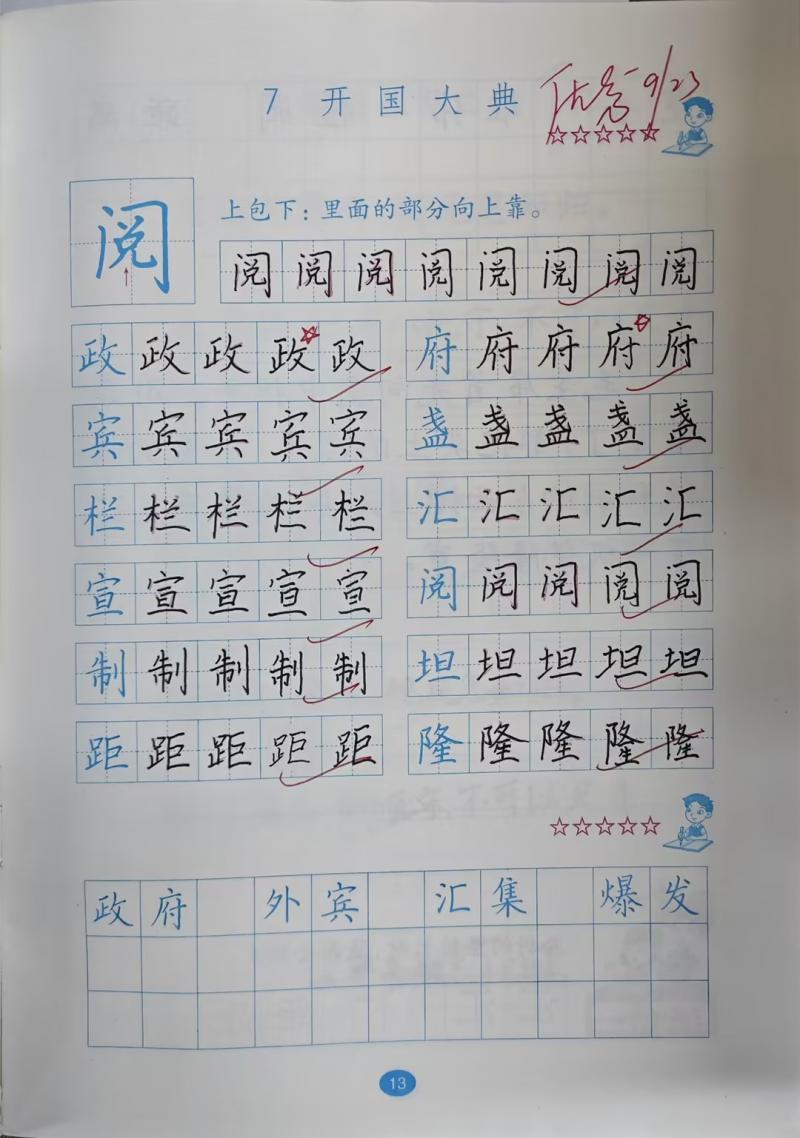 7 开国大典
优 9/23
☆☆☆☆☆
阅
上包下：里面的部分向上靠。
阅阅阅阅阅阅阅阅
政政政政政 府府府府府
宾宾宾宾宾 盏盏盏盏盏
栏栏栏栏栏 汇汇汇汇汇
宣宣宣宣宣 阅阅阅阅阅
制制制制制 坦坦坦坦坦
距距距距距 隆隆隆隆隆
☆☆☆☆☆
政府 外宾 汇集 爆发
13